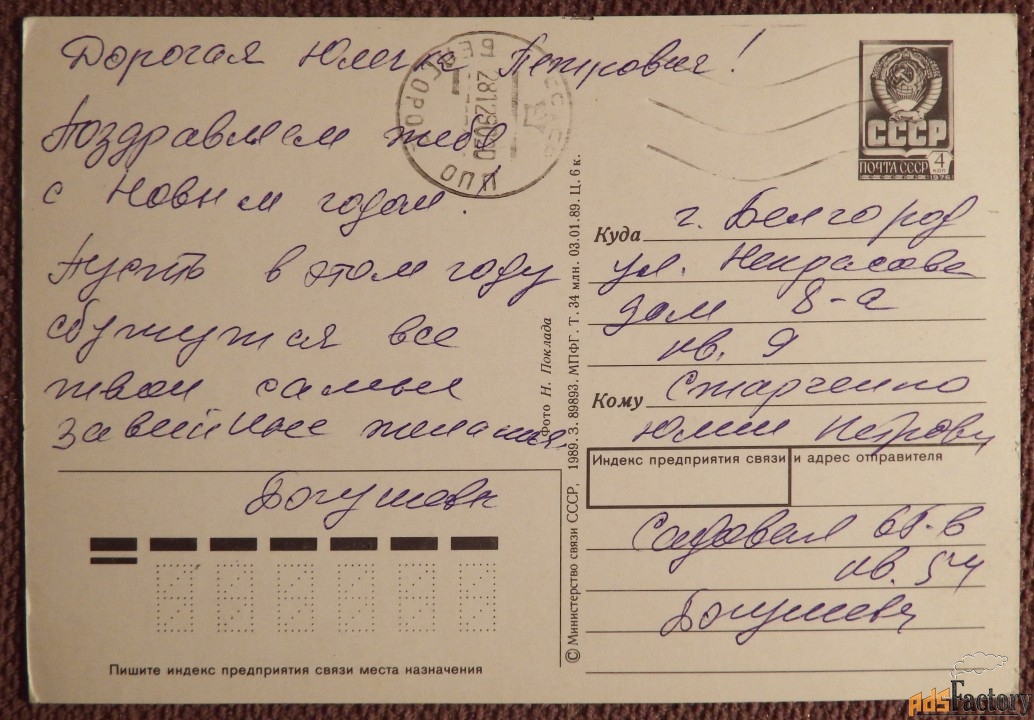 Дорогая Юлечка Петровна!
Поздравляем тебя
с Новым годом
Пусть в этом году
сбужутся все
твои самые
желания
Богушевы
БЕЛГОРОД
281290
ЦПО
СССР
ПОЧТА СССР
4 коп
1976
Куда г. Белгород
ул. Некрасова
дом 8-а
кв. 9
Кому Старченко
Юлии Петровне
Индекс предприятия связи и адрес отправителя
Садовая
кв. 54
Богушевы
Пишите индекс предприятия связи места назначения
© Министерство связи СССР, 1989. З. 89893. МПФГ. Т. 34 млн. 03.01.89. Ц. 6 к.
Фото Н. Поклада
AdsFactory